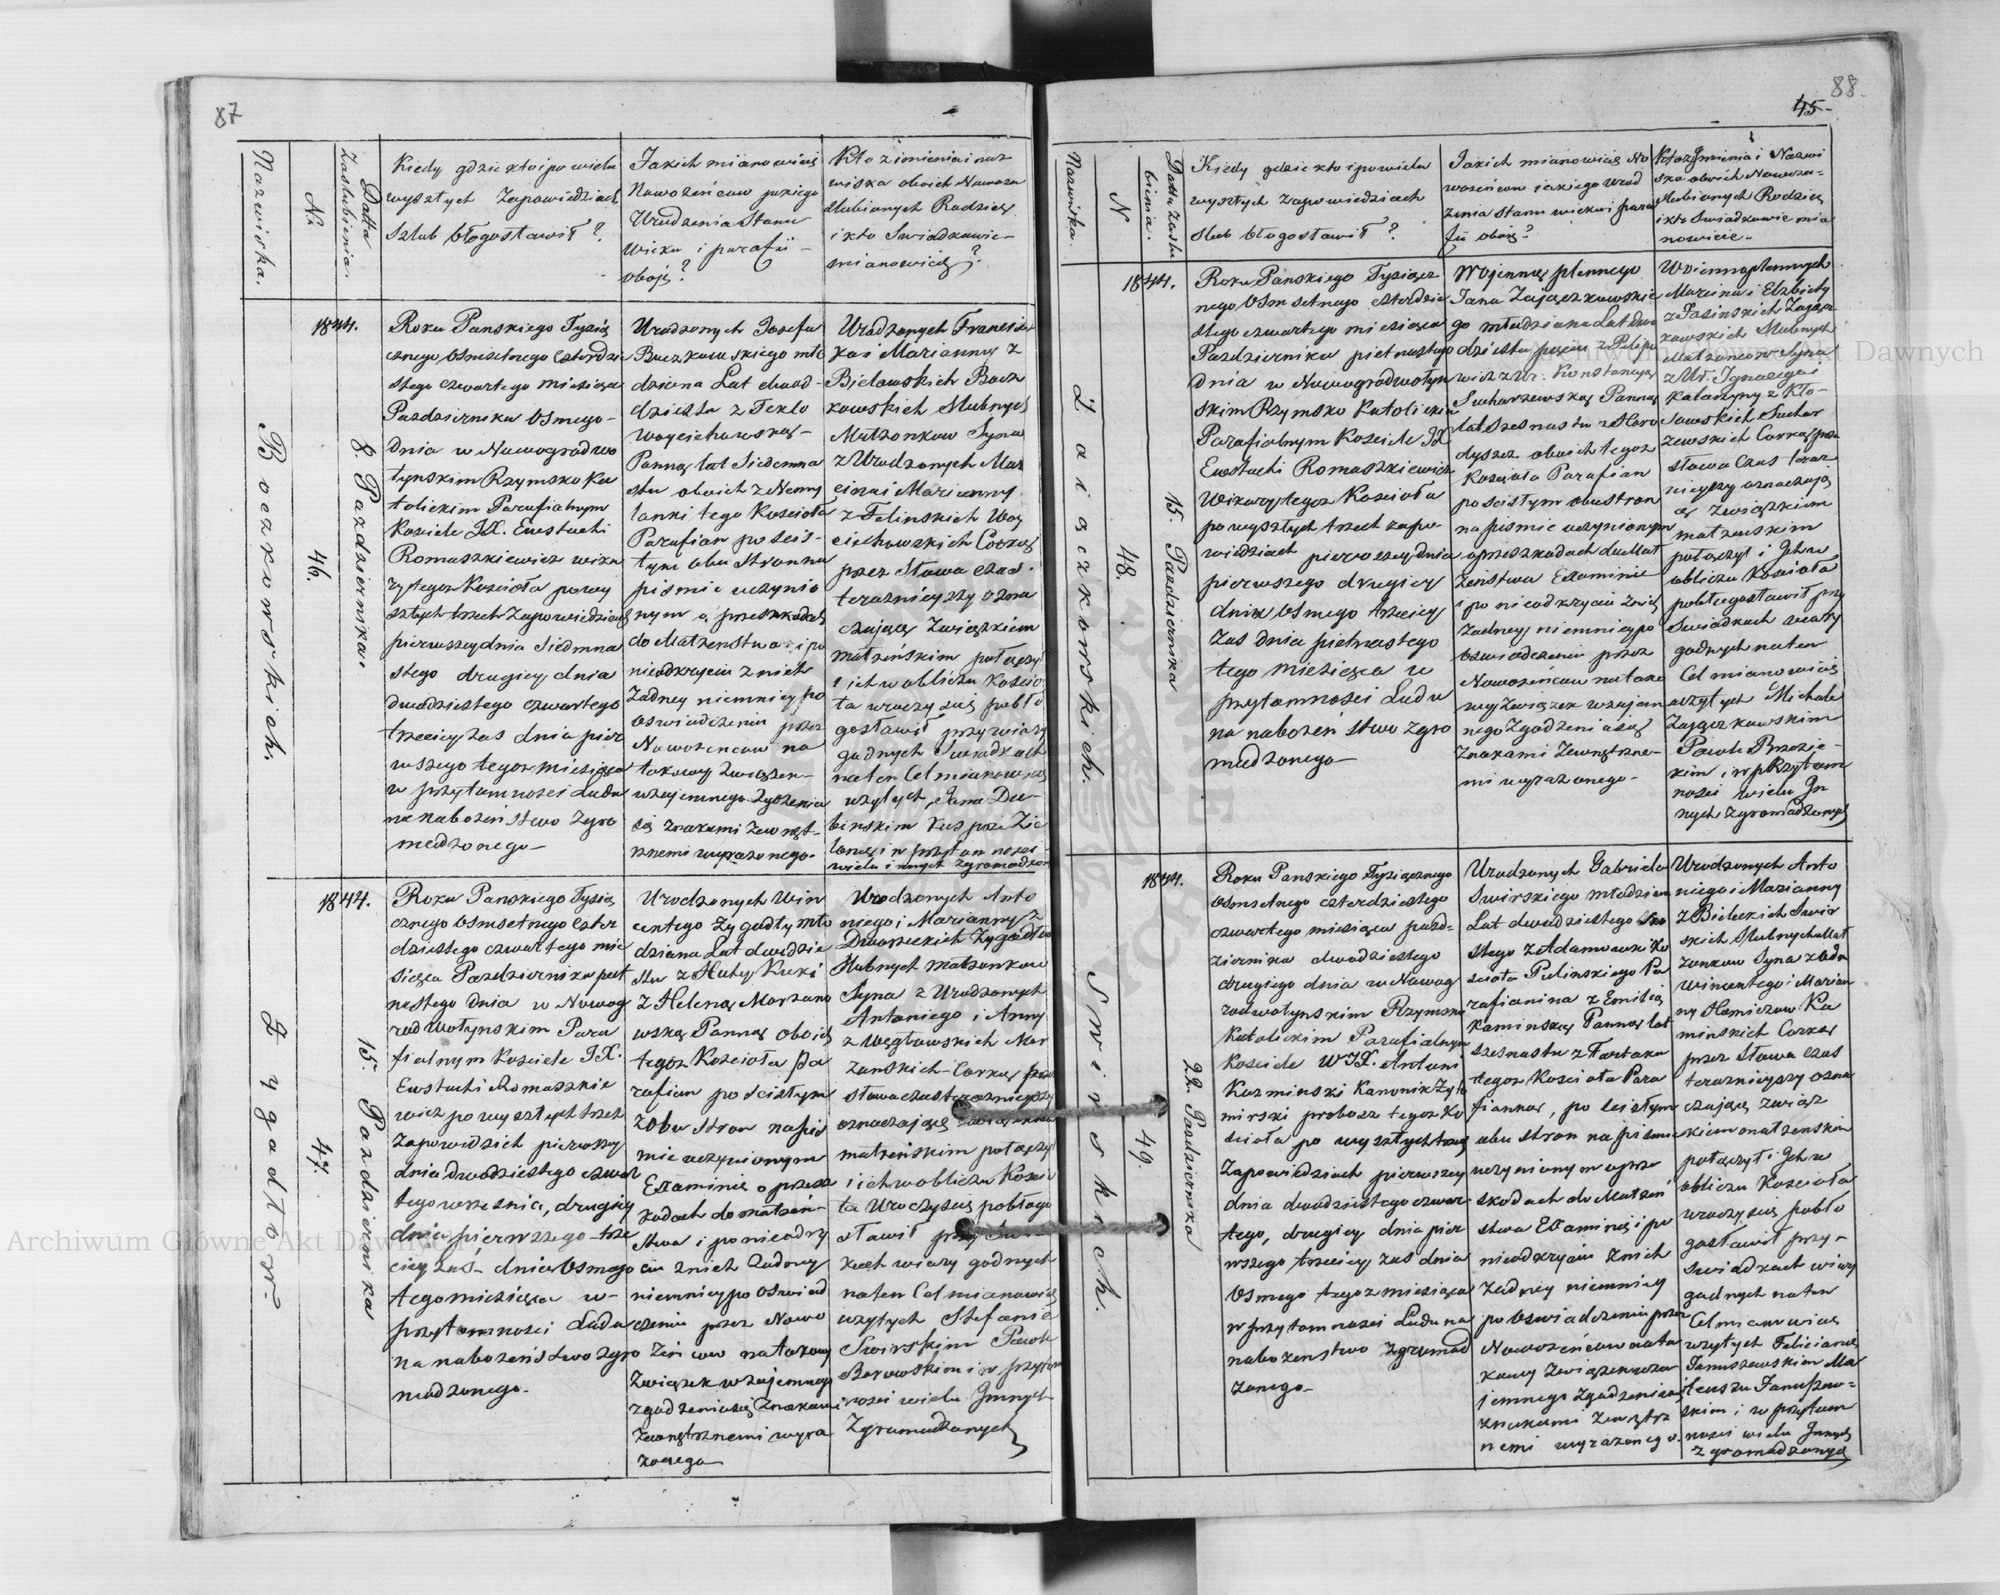 87
Nazwiska.
№
Datta
zaslubienia.
Kiedy gdzie kto i po wielu
wyszłych Zapowiedziach
Szlub błogosławił?
Jakich mianowicie
Nowożeńcow jakiego
Urodzenia Stanu
Wieku i parafii
obojé?
Kto z imienia i naz
wiska oboich Nowoza
slubionych Rodzice
i kto Swiadkowie
mianowicie?
Boczkowskich.
46.
8. Pazdziernika.
1844.
Roku Panskiego Tysią
cznego Osmsetnego Czterdzie
stego czwartego miesiąca
Pazdziernika Osmego
dnia w Nowogradwo
łynskim Rzymsko Ka
tolickim Parafialnym
Kosciele JX. Eustachi
Romaszkiewicz wika
ry tegoż Kosciola po wy
szłych trzech Zapowiedziach
pierwszey dnia Siedmna
stego drugiey dnia
dwudziestego czwartego
trzeciey zas dnia pier
wszego tegoz miesiąca
w przytomnosci Ludu
na nabożeństwo zgro
madzonego
Urodzonych Jozefa
Boczkowskiego mło
dziana Lat dwud-
dziestu z Teklo
Woyciechowską
Panną lat Siedemna
stu oboich z
tego Kosciola
Parafian po scis-
tym obu Stronna
pismie uczynio
nym o przeszkodach
do Matżenstwa i po
nieodkryciu z nich
żadney niemniey po
oswiadczeniu przez
Nowożencow na
takowy Związek
wzajemnego Zgodzenia
się znakami zewnęt-
rznemi wyrazonego.
Urodzonych Francisz
ka i Marianny z
Bielawskich Bocz
kowskich Slubnych
Matżonkow Syna
z Urodzonych Mar
cina i Marianny
z Felinskich Woy
ciechowskich Corkę
przez Słowa czas
teraznieyszy ozna
czające Związkiem
matżeńskim połączył
i ich w obliczu Koscio
ła uroczyscie pobło
gosławił przy wiary
godnych Swiadkach
na ten Cel mianowicie
użytych, Jana Du-
binskim
i w przytomnosci
wielu innych zgromadzon
Zygadłow
47.
15. Pazdziernika
1844.
Roku Panskiego Tysią
cznego Osmsetnego Czter
dziestego czwartego mie
siąca Pazdziernika pięt
nastego dnia w Nowog
rod Wołynskim Para
fialnym Kosciele JX.
Eustachi Romaszkie
wicz po wyszłych trzech
Zapowiedziach pierwszey
dnia dwudziestego czwar
tego wrzesnia, drugiey
dnia pierwszego trze
ciey zas dnia Osmego
tego miesiąca w
przytomnosci Ludu
na nabożeństwo zgro
madzonego.
Urodzonych Win
centego Zygadły mło
dziana Lat dwudzie
stu z Huty Kuki
z Heleną Marzano
wską Panną oboich
tegoż Kosciola Pa
rafian po scisłym
z obu stron na pis
mie uczynionym
Examinie o przesz
kodach do matżeń-
stwa i po nieodkry
ciu z nich żadney
niemniey po oswiad
czeniu przez Nowo
żeńcow na takowy
Związek wzajemnego
zgodzenia się Znakami
zewnętrznemi wyra
zonego
Urodzonych Anto
niego i Marianny z
Dworzeckich Zygadłow
Slubnych matżonkow
Syna z Urodzonych
Antoniego i Anny
z Węgłowskich Mar
zanskich Corkę przez
słowa czas teraznieyszy
oznaczające związkiem
matżeńskim połączył
i ich w obliczu Kosci
oła Uroczyscie pobłogo
sławił przy Swiad
kach wiary godnych
na ten Cel mianowicie
użytych Stefanie
Swirskim Pawle
Borowskim i w przytom
nosci wielu Innych
Zgromadzonych
88
45
Nazwiska.
N
Datta zaslu
bienia.
Kiedy gdzie kto i powielu
wyszłych zapowiedziach
slub błogosławił?
Jakich mianowicie No
wożeńcow i jakiego Urod
zenia stanu wieku i para
fii oboję?
Kto z Imienia i Nazwi
ska oboich Nowoza-
slubionych Rodzice
i kto Swiadkowie mia
nowicie
Zaiączkowskich.
48.
15. Pazdziernika
1844.
Roku Panskiego Tysiącz
nego Osmsetnego czterdzie
stego czwartego miesiąca
Pazdziernika piętnastego
dnia w Nowogradwołyn
skim Rzymsko Katolickim
Parafialnym Kosciele JX
Eustachi Romaszkiewicz
Wikary tegoż Kosciola
po wyszłych trzech zapo
wiedziach pierwszey dnia
pierwszego drugiey
dnia Osmego trzeciey
Zas dnia piętnastego
tego miesiąca w
przytomnosci Ludu
na nabożeństwo Zgro
madzonego
Wojennoplennego
Jana Zajączkowskie
go młodziana Lat dwu
dziestu pięciu z
z Ur. Konstancyą
Sucharzewską Panną
lat Szesnastu z
oboich tegoż
Kosciola Parafian
po scisłym obustron
na pismie uczynionym
o przeszkodach do Mat
żeństwa Examinie
i po nieodkryciu z nich
żadney niemniey po
oswiadczeniu przez
Nowożencow na tako
wy Związek wzajem
nego Zgodzenia się
Znakami Zewnętrzne-
mi wyrazonego
Woiennoplennych
Marcina i Elzbiety
z Jasinskich Zającz
kowskich Slubnych
Matżonkow Syna
z Ur. Ignacego i
Katarzyny z Kło-
sowskich Suchar
zewskich Corką prze
słowa Czas teraz
nieyszy oznaczają
ce Związkiem
matżenskim
połączył i Ich w
obliczu Kosciola
pobłogosławił przy
Swiadkach wiary
godnych na ten
Cel mianowicie
użytych Michale
Zajączkowskim
Pawle Brzezic-
kim i w przytom
nosci wielu In
nych zgromadzonych
Swirskich.
49.
22. Pazdziernika
1844.
Roku Panskiego Tysiącznego
Osmsetnego czterdziestego
czwartego miesiąca pazd-
ziernika dwudziestego
drugiego dnia w Nowog
radwołynskim Rzymsko
Katolickim Parafialnym
Kosciele WJX. Antoni
Kozminski Kanonik Zyto
mirski proboszcz tegoz Ko
sciola po wyszłych trzech
Zapowiedziach pierwszey
dnia dwudziestego czwar-
tego, drugiey dnia pier
wszego trzeciey zas dnia
Osmego tegoz miesiąca
w przytomnosci Ludu na
nabożeństwo zgromad
zonego
Urodzonych Gabriela
Swirskiego młodziana
Lat dwudziestego szo
stego z Adamowki Ko
sciola Pulinskiego Pa
rafianina z Emilią
Kaminską Panną lat
szesnastu z Fortaku
tegoz Kosciola Para
fianką, po scisłym
obu stron na pismie
uczynionym o prze
szkodach do Matżeń
stwa Examinie i po
nieodkryciu z nich
żadney niemniey
po oswiadczeniu przez
Nowożeńcow na ta
kowy Związek wza
jemnego Zgodzenia się
znakami Zewnętrz
nemi wyrażonego.
Urodzonych Anto
niego i Marianny
z Bieleckich Swir
skich Slubnych Mat
żonkow Syna z Uro
Wincentego i Marian
ny Ka
minskich Corkę
przez słowa czas
teraznieyszy ozna
czające związ
kiem matżenskim
połączył i Ich w
obliczu Kosciola
uroczyscie pobło
gosławił przy
Swiadkach wiary
godnych na ten
Cel mianowicie
użytych Felicianie
Januszewskim Ma
teuszu Januszew-
skim i w przytom
nosci wielu Innych
zgromadzonych
Archiwum Główne Akt Dawnych
Archiwum Główne Akt Dawnych